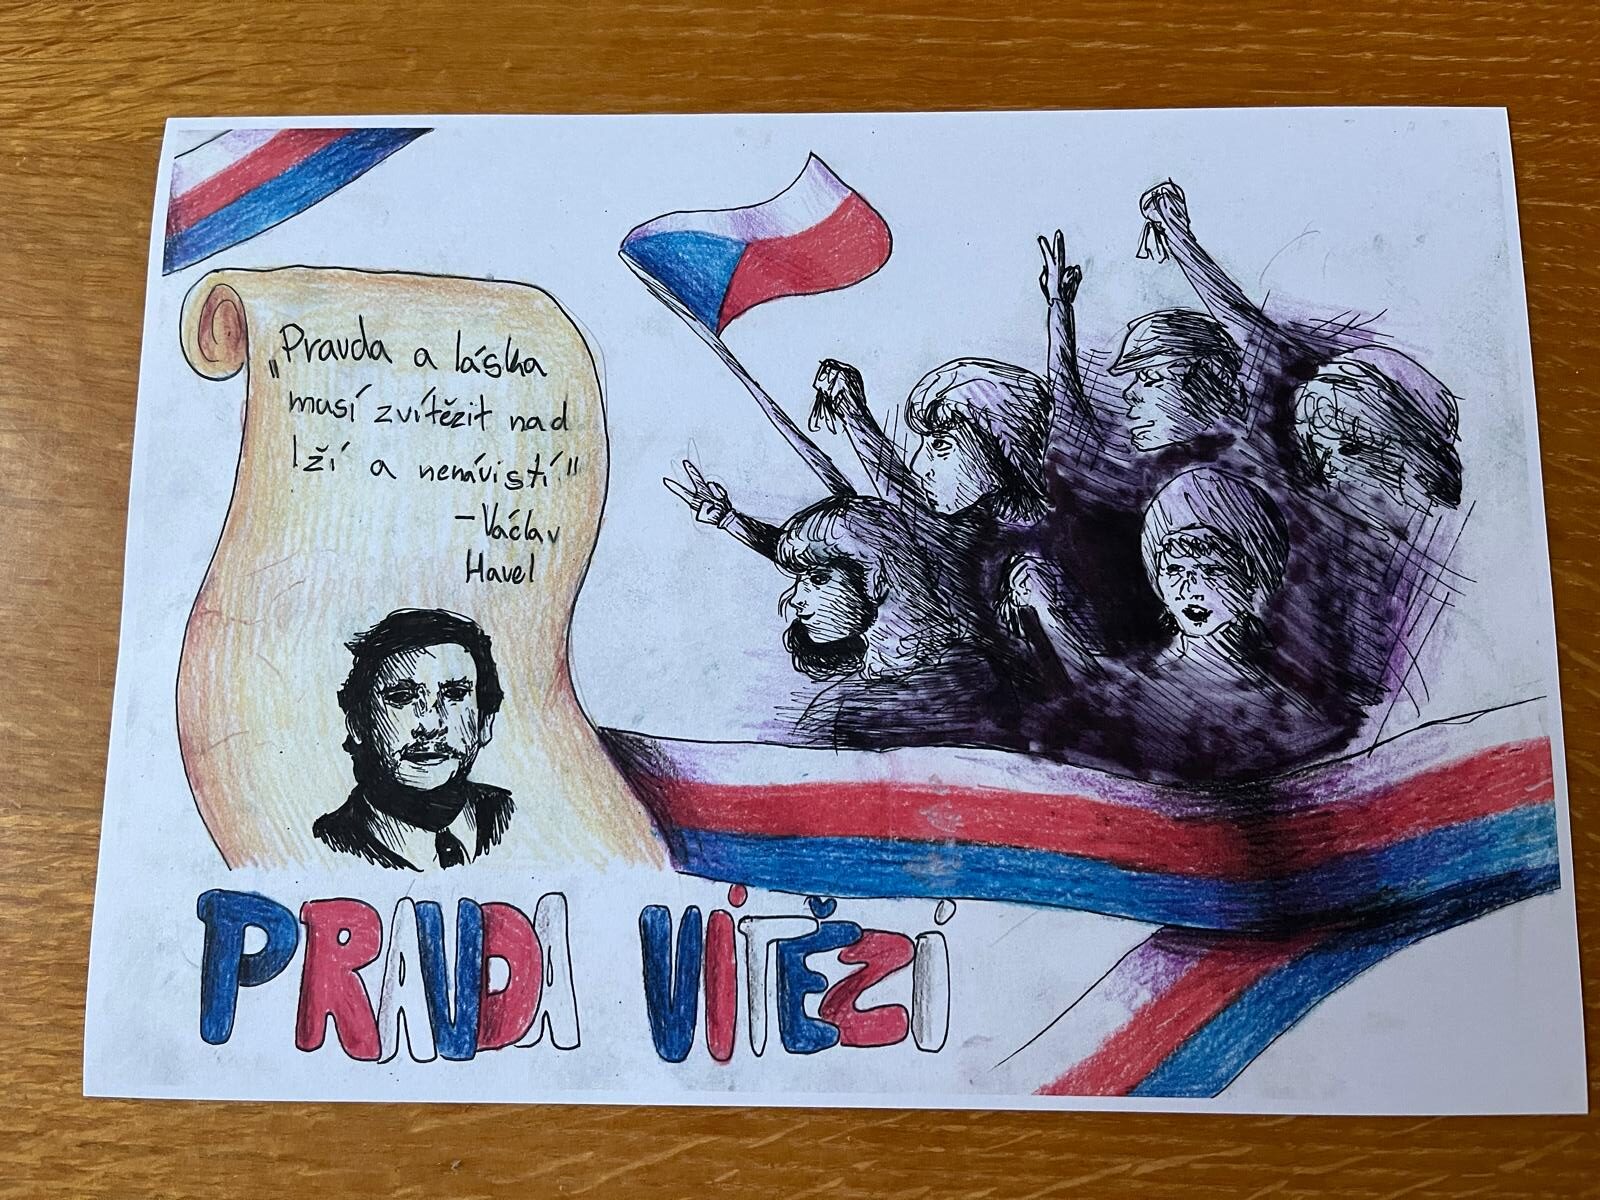 „Pravda a láska
musí zvítězit nad
lží a nenávistí"
– Václav
Havel
PRAVDA VÍTĚZÍ